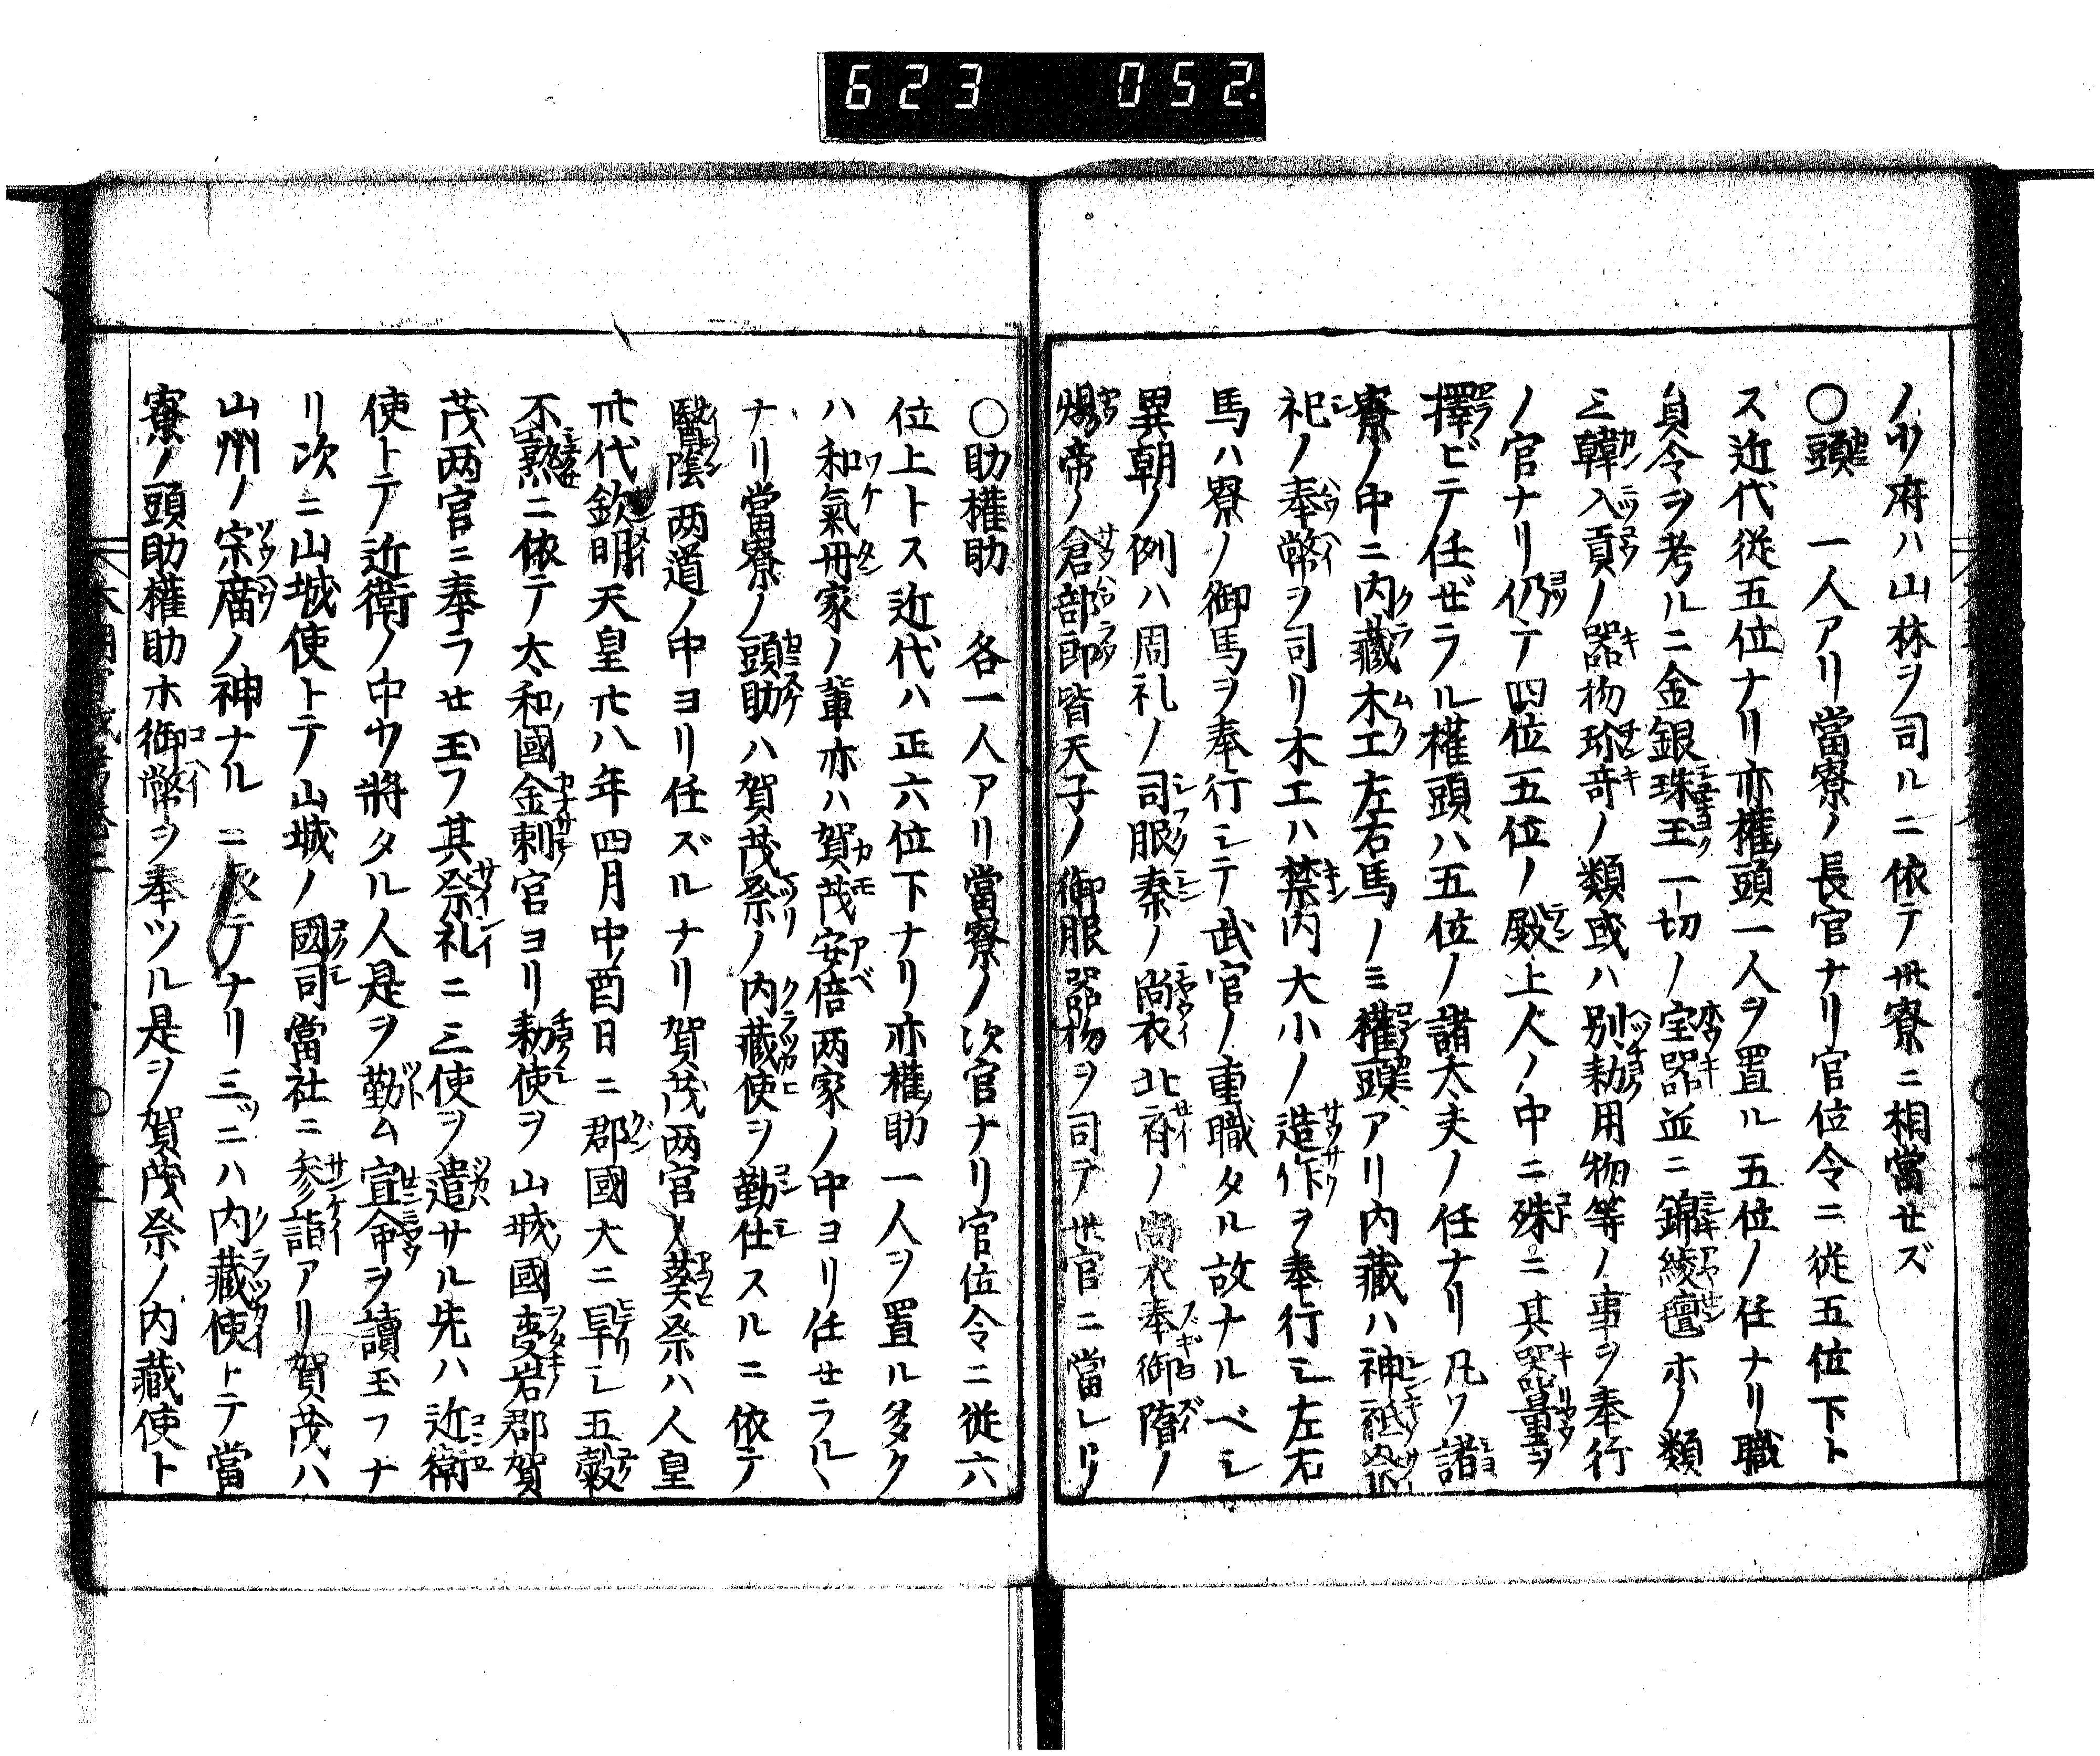 623 052.
ノ少府ハ山林ヲ司ルニ依テ此寮ニ相當セズ
○頭 一人アリ當寮ノ長官ナリ官位令ニ従五位下ト
ス近代従五位ナリ亦權頭一人ヲ置ル五位ノ任ナリ職
員令ヲ考ルニ金銀珠玉一切ノ宝器並ニ錦綾氊ホノ類
三韓入貢ノ器物珍竒ノ類或ハ別勅用物等ノ事ヲ奉行
ノ官ナリ仍テ四位五位ノ殿上人ノ中ニ殊ニ其器量ヲ
擇ビテ任ゼラル權頭ハ五位ノ諸太夫ノ任ナリ凡ソ諸
寮ノ中ニ内藏木工左右馬ノミ權頭アリ内藏ハ神祇祭
祀ノ奉幣ヲ司リ木工ハ禁内大小ノ造作ヲ奉行シ左右
馬ハ寮ノ御馬ヲ奉行シテ武官ノ重職タル故ナルベシ
異朝ノ例ハ周礼ノ司服秦ノ尚衣北齊ノ尚衣奉御隋ノ
煬帝ノ倉部郎皆天子ノ御服器物ヲ司テ此官ニ當レリ
○助權助 各一人アリ當寮ノ次官ナリ官位令ニ従六
位上トス近代ハ正六位下ナリ亦權助一人ヲ置ル多ク
ハ和氣丹家ノ輩亦ハ賀茂安倍两家ノ中ヨリ任セラルヽ
ナリ當寮ノ頭助ハ賀茂祭ノ内藏使ヲ勤仕スルニ依テ
醫陰两道ノ中ヨリ任ズルナリ賀茂两官ノ葵祭ハ人皇
卅代欽明天皇廿八年四月中酉日ニ郡國大ニ旱シ五穀
不熟ニ依テ太和國金刺官ヨリ勅使ヲ山城國愛宕郡賀
茂两官ニ奉ラせ玉フ其祭礼ニ三使ヲ遣サル先ハ近衛
使トテ近衛ノ中少將タル人是ヲ勤ム宣命ヲ讀玉フナ
リ次ニ山城使トテ山城ノ國司當社ニ参詣アリ賀茂ハ
山州ノ宗廟ノ神ナルニ依テナリ三ツニハ内藏使トテ當
寮ノ頭助權助ホ御幣ヲ奉ツル是ヲ賀茂祭ノ内藏使ト